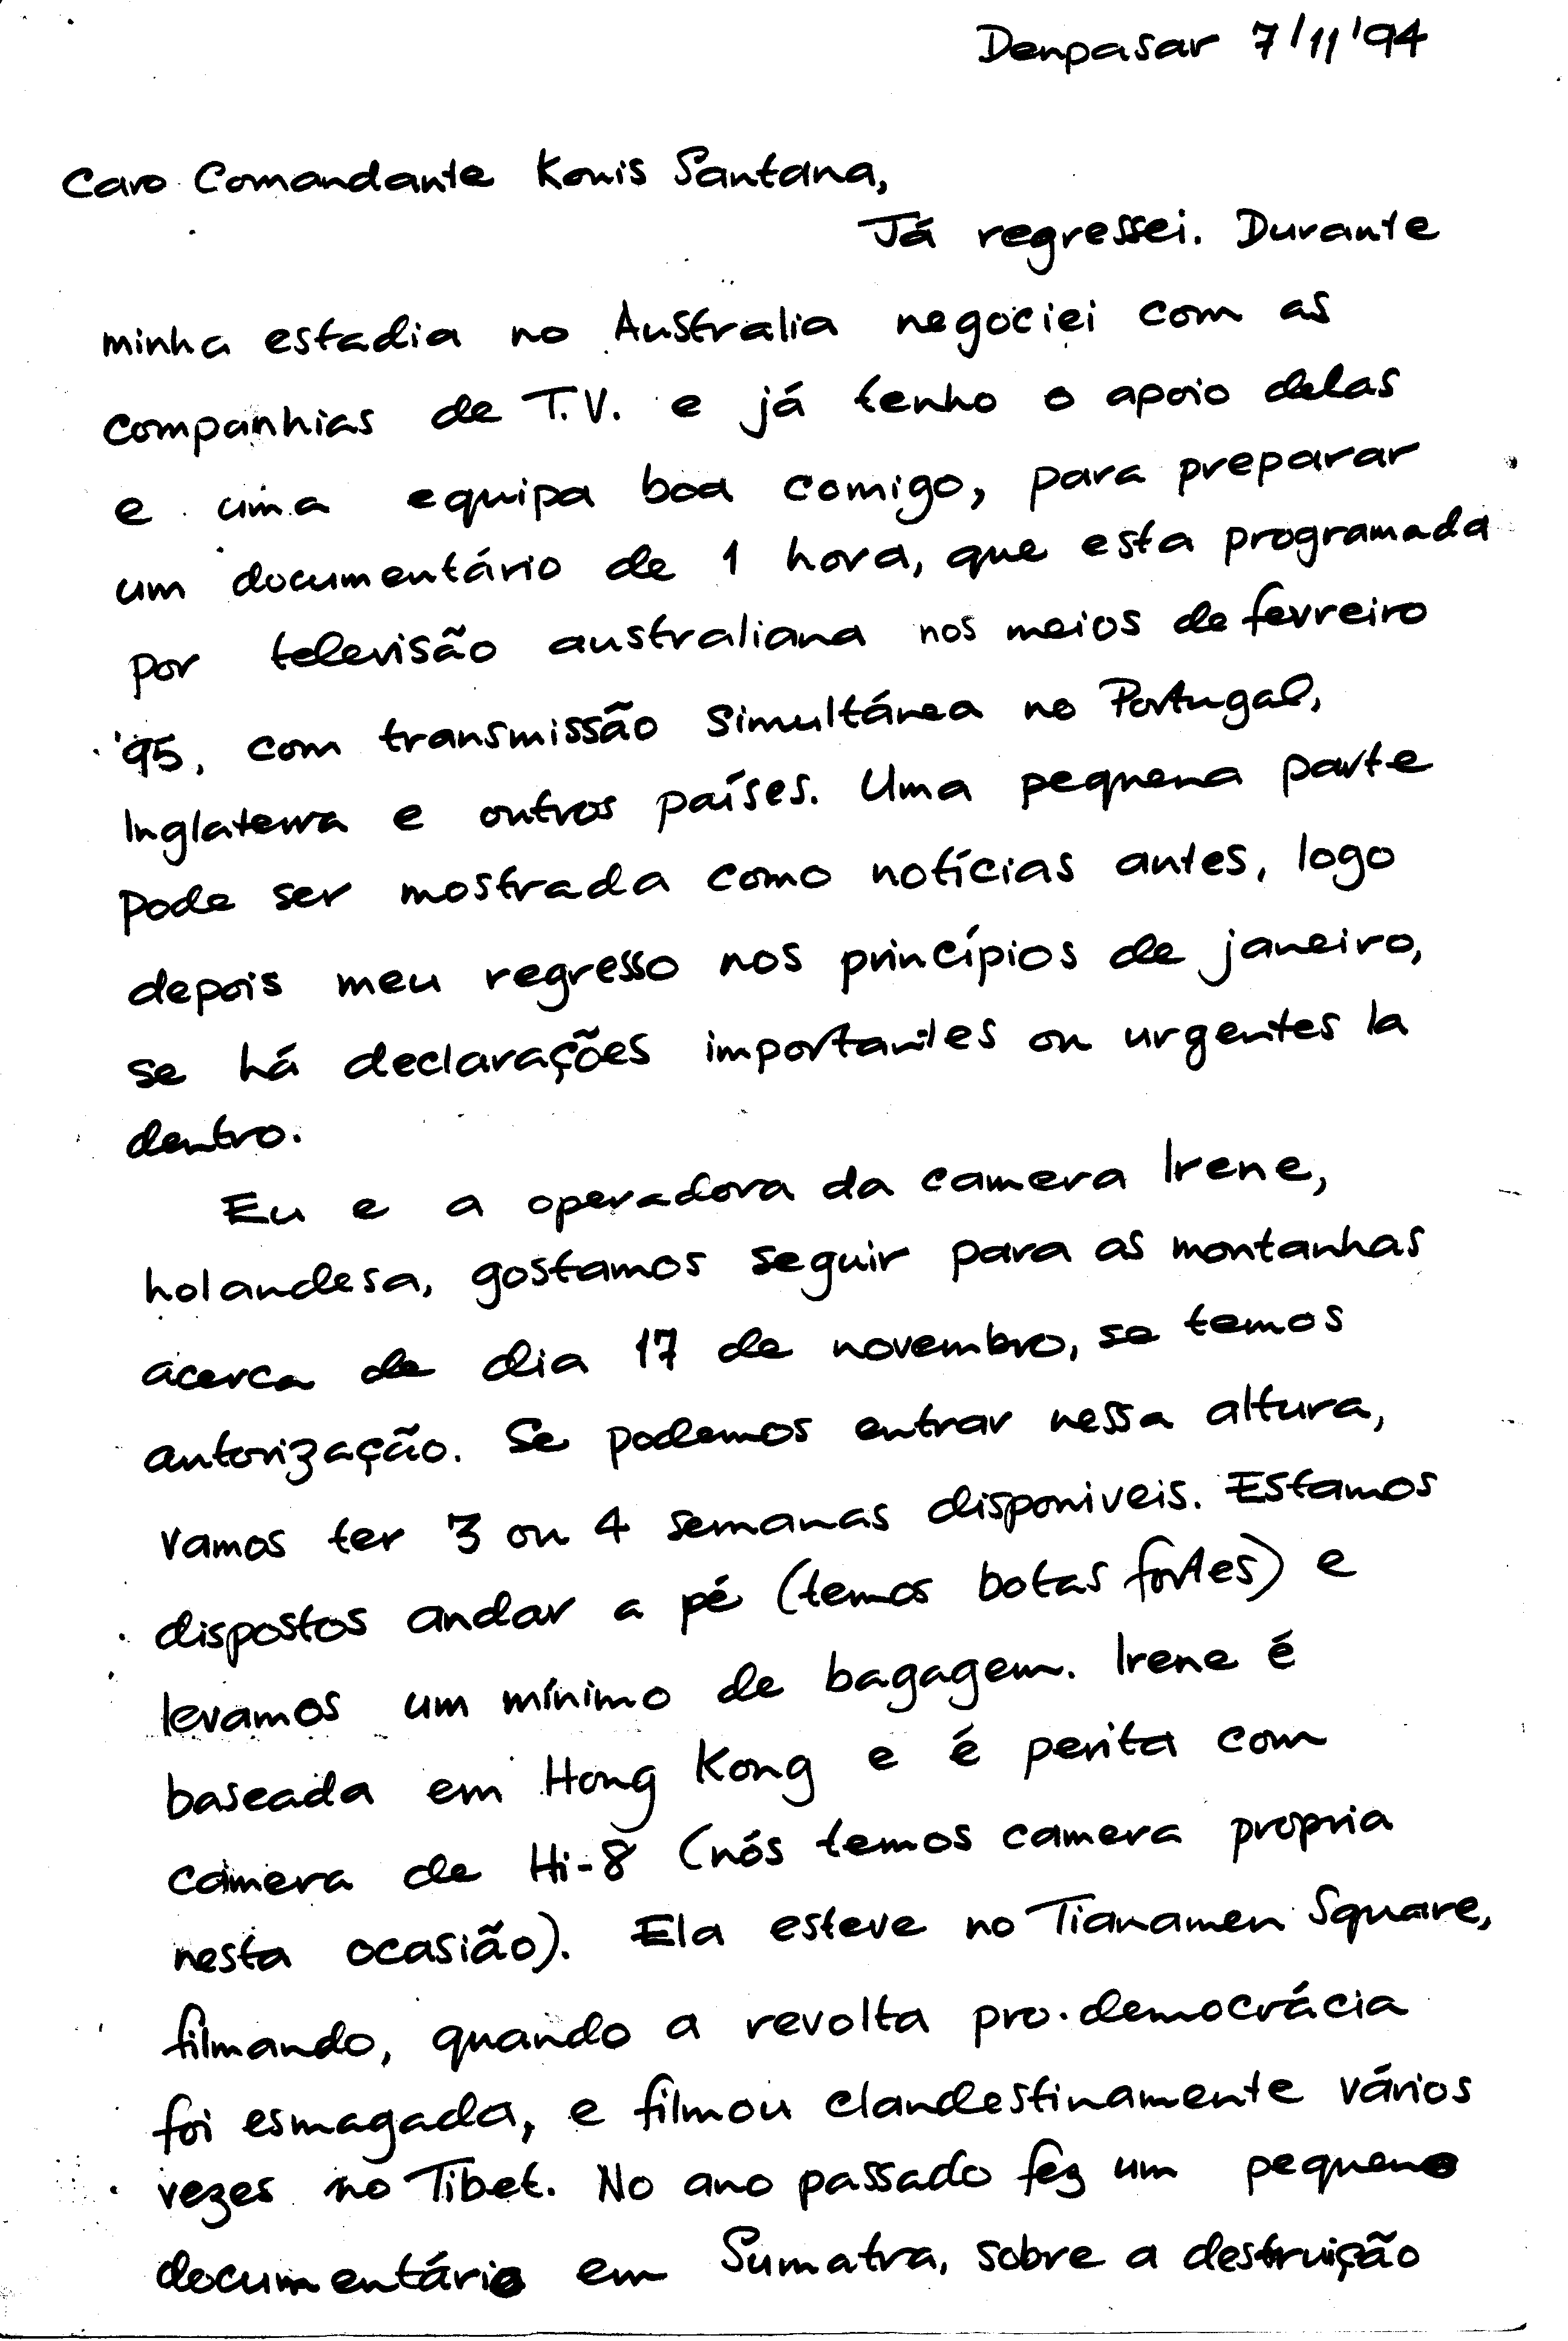 Denpasar 7/11/'94
Caro Comandante Konis Santana,
Já regressei. Durante
minha estadia no Australia negociei com as
companhias de T.V. e já tenho o apoio delas
e uma equipa boa comigo, para preparar
um documentário de 1 hora, que esta programada
por televisão australiana nos meios de fevreiro
'95, com transmissão simultánea no Portugal,
Inglaterra e outros países. Uma pequena parte
pode ser mostrada como notícias antes, logo
depois meu regresso nos princípios de janeiro,
se há declarações importantes ou urgentes la
dentro.
Eu e a operadora da camera Irene,
holandesa, gostamos seguir para as montanhas
acerca de dia 17 de novembro, se temos
autorização. Se podemos entrar nessa altura,
vamos ter 3 ou 4 semanas disponiveis. Estamos
dispostos andar a pé (temos botas fortes) e
levamos um mínimo de bagagem. Irene é
baseada em Hong Kong e é perita com
camera de Hi-8 (nós temos camera propria
nesta ocasião). Ela esteve no Tianamen Square,
filmando, quando a revolta pro-democrácia
foi esmagada, e filmou clandestinamente vários
vezes no Tibet. No ano passado fez um pequeno
documentário em Sumatra, sobre a destruição